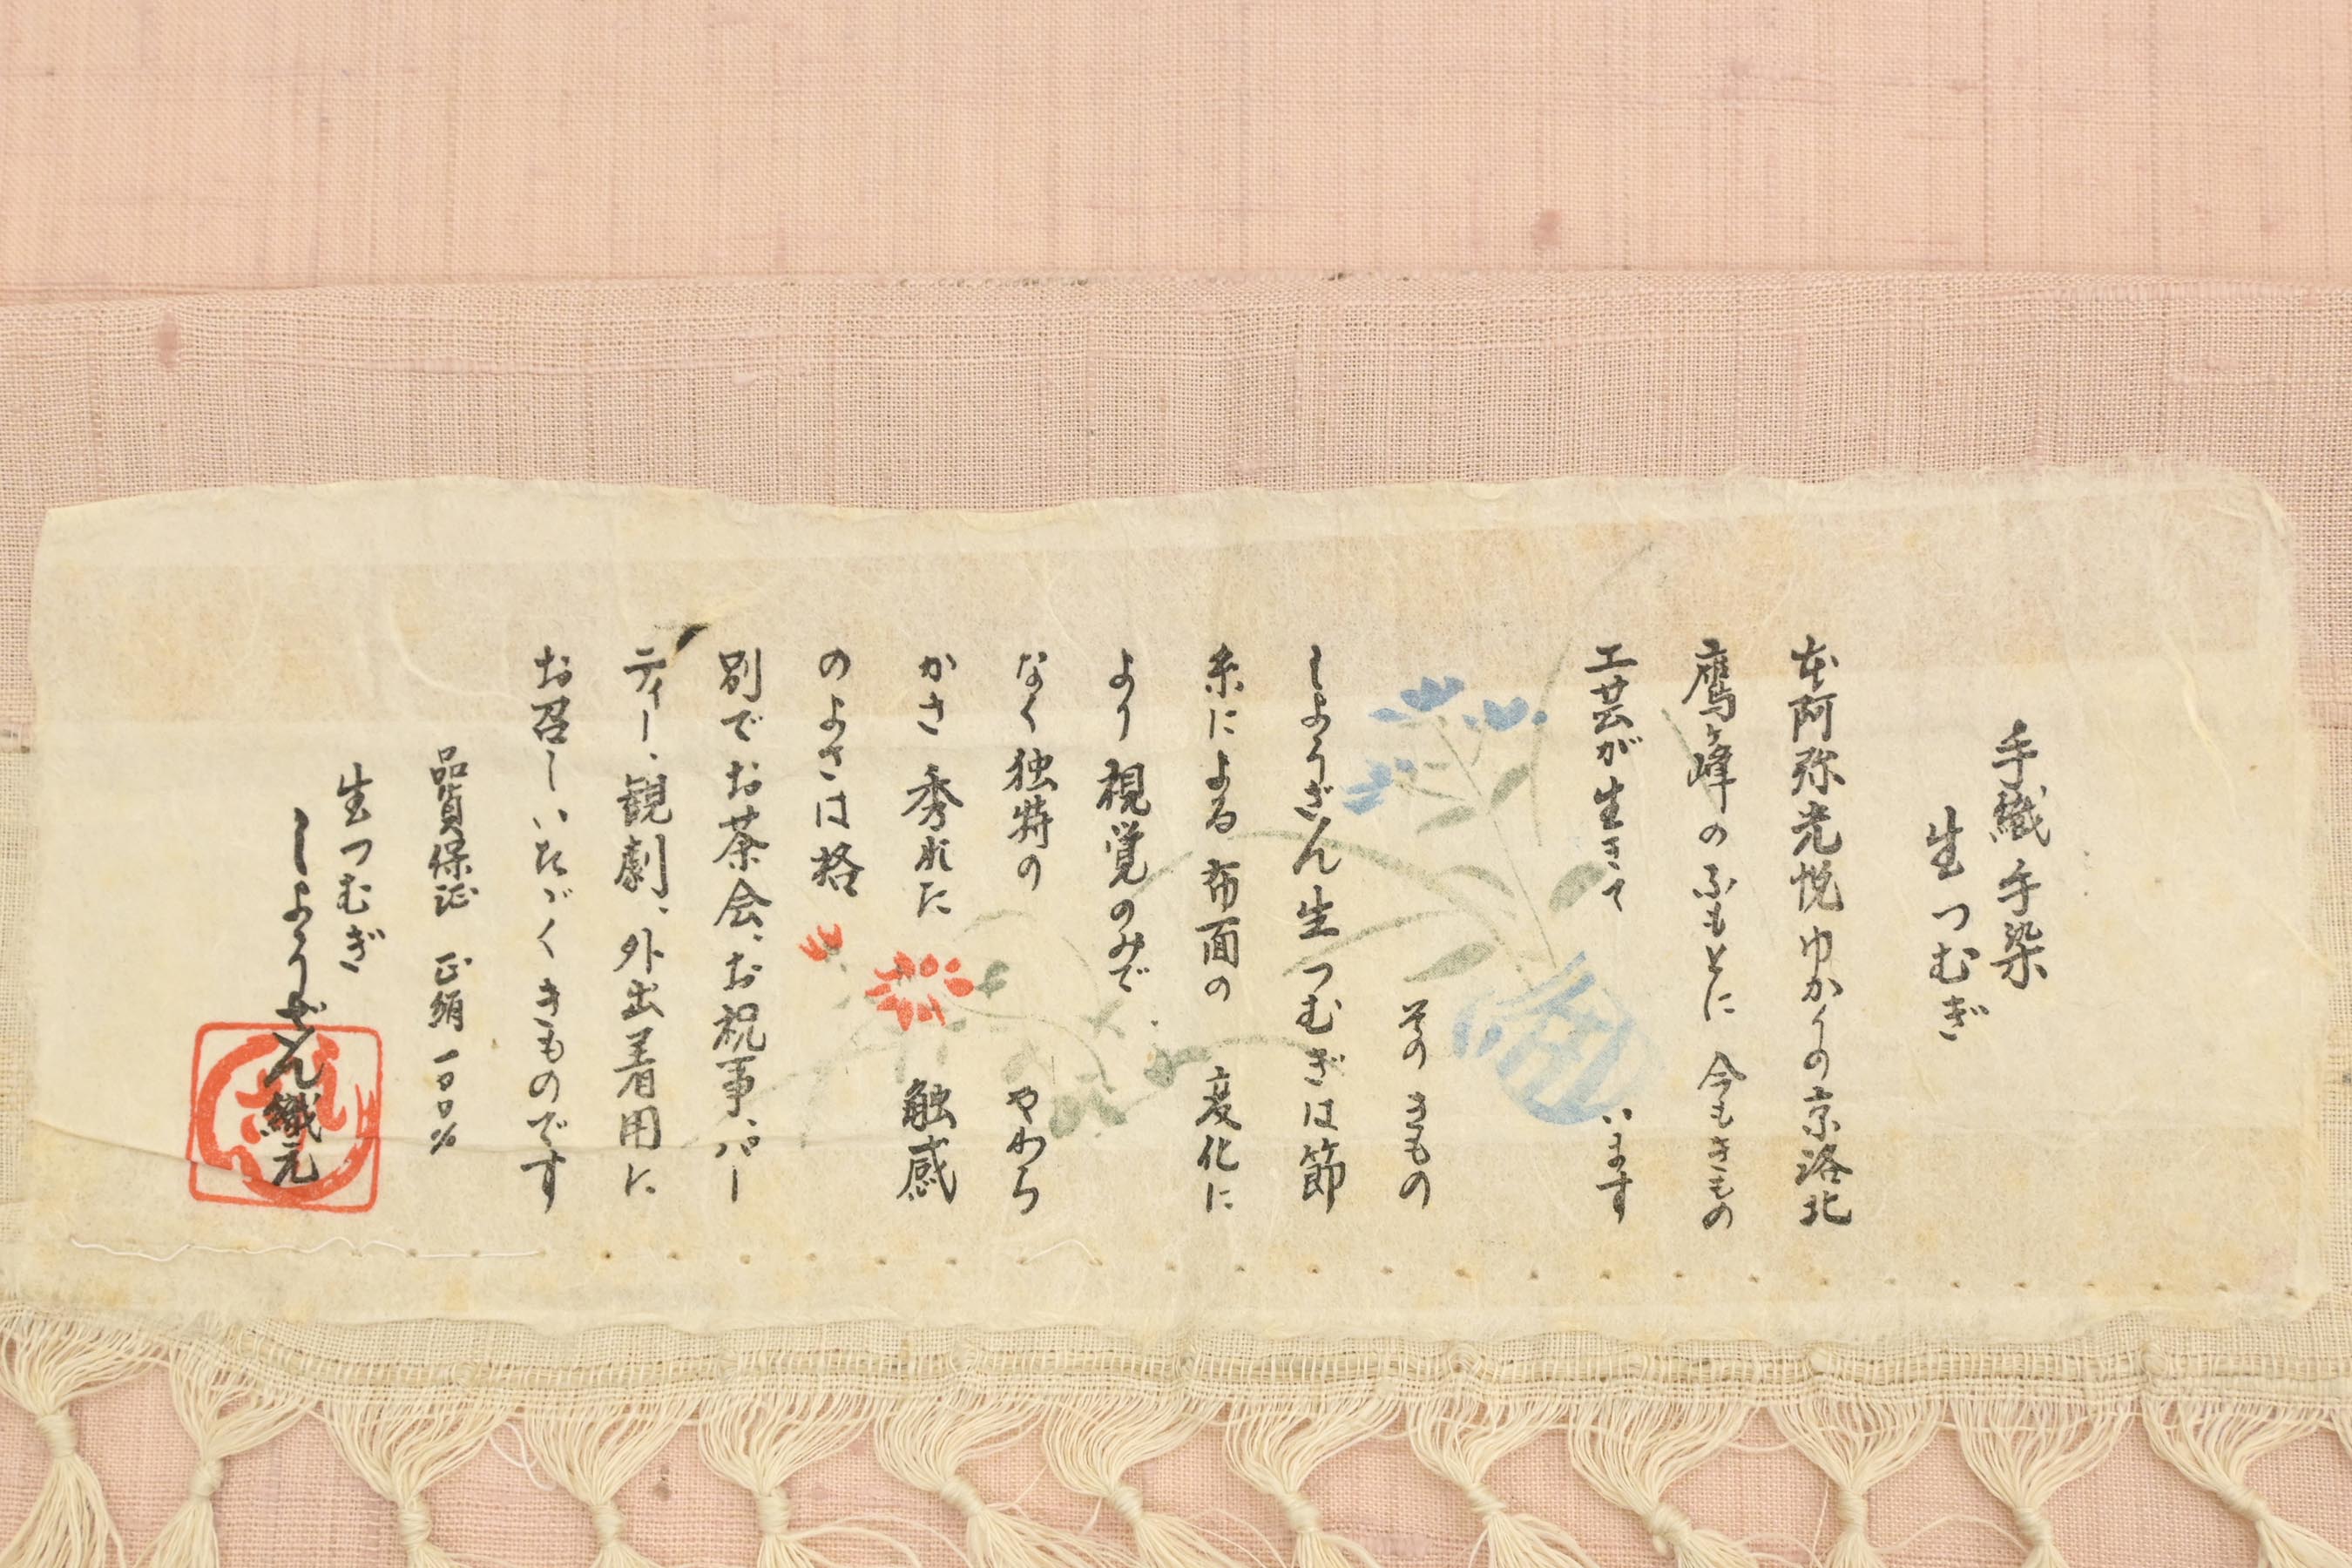 手織 手染
生つむぎ
本阿弥光悦ゆかりの京洛北
鷹ヶ峰のふもとに 今もきもの
工芸が生きて います
その きもの
しようざん生つむぎは節
糸による布面の 変化に
より視覚のみで
なく独特の やわら
かさ秀れた 触感
のよさは格
別でお茶会、お祝事、パー
ティー、観劇、外出着用に
お召しいたゞくきものです
品質保証 正絹 一〇〇%
生つむぎ
しようざん織元